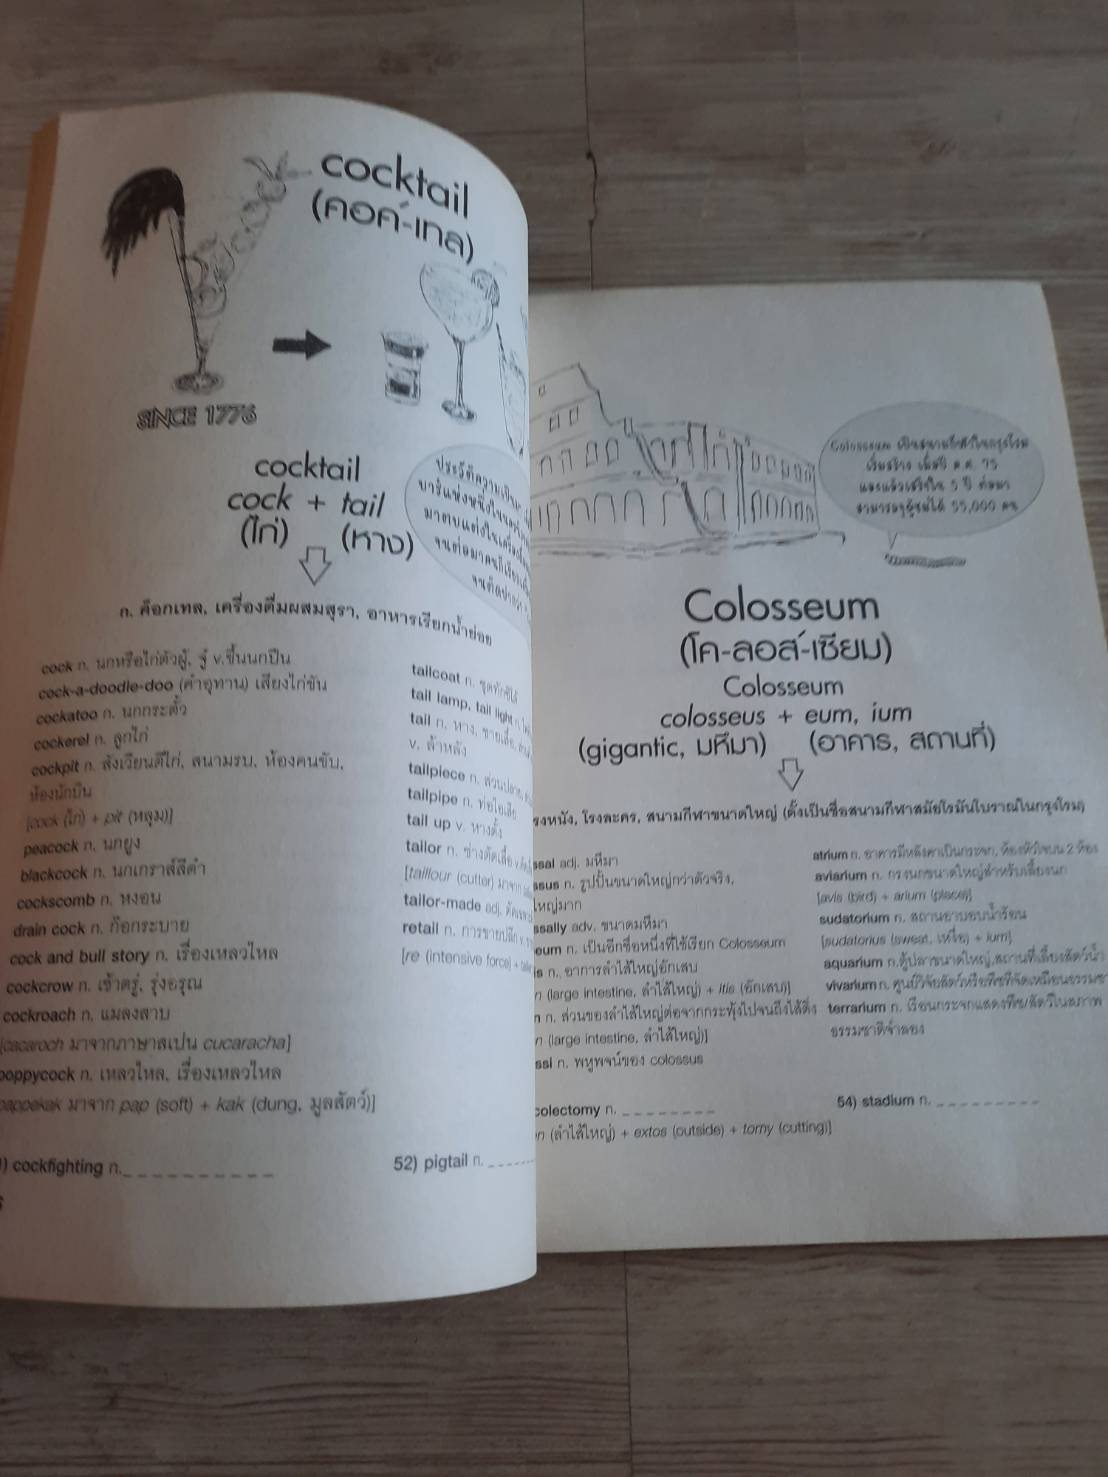 cocktail
(คอค์-เทล)
SINCE 1776
cocktail
cock + tail
(ไก่) (หาง)
n. ค็อกเทล, เครื่องดื่มผสมสุรา, อาหารเรียกน้ำย่อย
cock n. นกหรือไก่ตัวผู้, จู๋ v.ขึ้นนกปืน
cock-a-doodle-doo (คำอุทาน) เสียงไก่ขัน
cockatoo n. นกกระตั้ว
cockerel n. ลูกไก่
cockpit n. สังเวียนตีไก่, สนามรบ, ห้องคนขับ,
ห้องนักบิน
[cock (ไก่) + pit (หลุม)]
peacock n. นกยูง
blackcock n. นกเกราส์สีดำ
cockscomb n. หงอน
drain cock n. ก๊อกระบาย
cock and bull story n. เรื่องเหลวไหล
cockcrow n. เช้าตรู่, รุ่งอรุณ
cockroach n. แมลงสาบ
[cacaroch มาจากภาษาสเปน cucaracha]
poppycock n. เหลวไหล, เรื่องเหลวไหล
pappekak มาจาก pap (soft) + kak (dung, มูลสัตว์)]
) cockfighting n._ _ _ _ _ _ _ _ _ _
ประวัติความเป็นมา
บาร์แห่งหนึ่งใน
มาตบแต่งใน
tailcoat n. ชุดทักซิโด้
tail lamp, tail light n.
tail n. หาง, ชายเสื้อ,
v. ล้าหลัง
tailpiece n. ส่วนปลาย,
tailpipe n. ท่อไอเสีย
tail up v. หางตั้ง
tailor n. ช่างตัดเสื้อ
[taillour (cutter) มาจาก
tailor-made adj.
retail n. การขายปลีก v.
[re (intensive force) +
52) pigtail n. _ _ _ _ _
Colosseum เป็นสนามกีฬาในกรุงโรม
เริ่มสร้าง เมื่อปี ค.ศ. 75
และแล้วเสร็จใน 5 ปี ต่อมา
สามารถจุผู้ชมได้ 55,000 คน
Colosseum
(โค-ลอส์-เซียม)
Colosseum
colosseus + eum, ium
(gigantic, มหึมา) (อาคาร, สถานที่)
รงหนัง, โรงละคร, สนามกีฬาขนาดใหญ่ (ตั้งเป็นชื่อสนามกีฬาสมัยโรมันโบราณในกรุงโรม)
ssal adj. มหึมา
ssus n. รูปปั้นขนาดใหญ่กว่าตัวจริง,
ใหญ่มาก
ssally adv. ขนาดมหึมา
eum n. เป็นอีกชื่อหนึ่งที่ใช้เรียก Colosseum
is n. อาการลำไส้ใหญ่อักเสบ
n (large intestine, ลำไส้ใหญ่) + itis (อักเสบ)]
n n. ส่วนของลำไส้ใหญ่ต่อจากกระพุ้งไปจนถึงไส้ตั้ง
n (large intestine, ลำไส้ใหญ่)]
ssi n. พหูพจน์ของ colossus
colectomy n. _ _ _ _ _ _ _ _
n (ลำไส้ใหญ่) + extos (outside) + tomy (cutting)]
atrium n. อาคารมีหลังคาเป็นกระจก, ห้องหัวใจบน 2 ห้อง
aviarium n. กรงนกขนาดใหญ่สำหรับเลี้ยงนก
[avis (bird) + arium (place)]
sudatorium n. สถานอาบอบน้ำร้อน
[sudatorius (sweat, เหงื่อ) + ium]
aquarium n.ตู้ปลาขนาดใหญ่,สถานที่เลี้ยงสัตว์น้ำ
vivarium n. ศูนย์วิจัยสัตว์หรือพืชที่จัดเหมือนธรรมชา
terrarium n. เรือนกระจกแสดงพืช/สัตว์ในสภาพ
ธรรมชาติจำลอง
54) stadium n. _ _ _ _ _ _ _ _ _